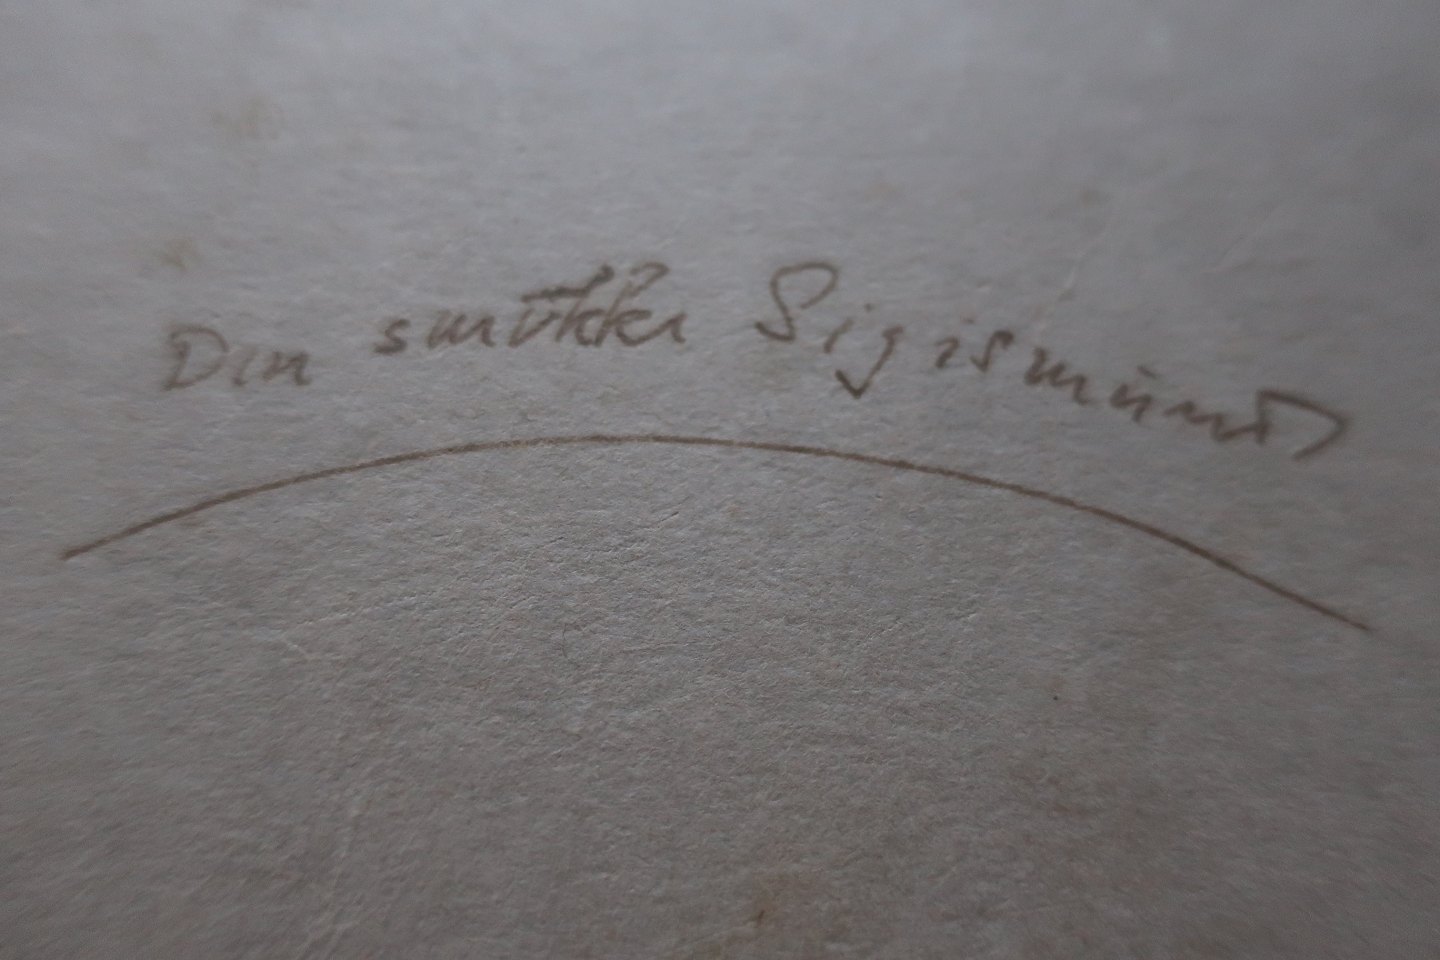 Den smukke Sigismund